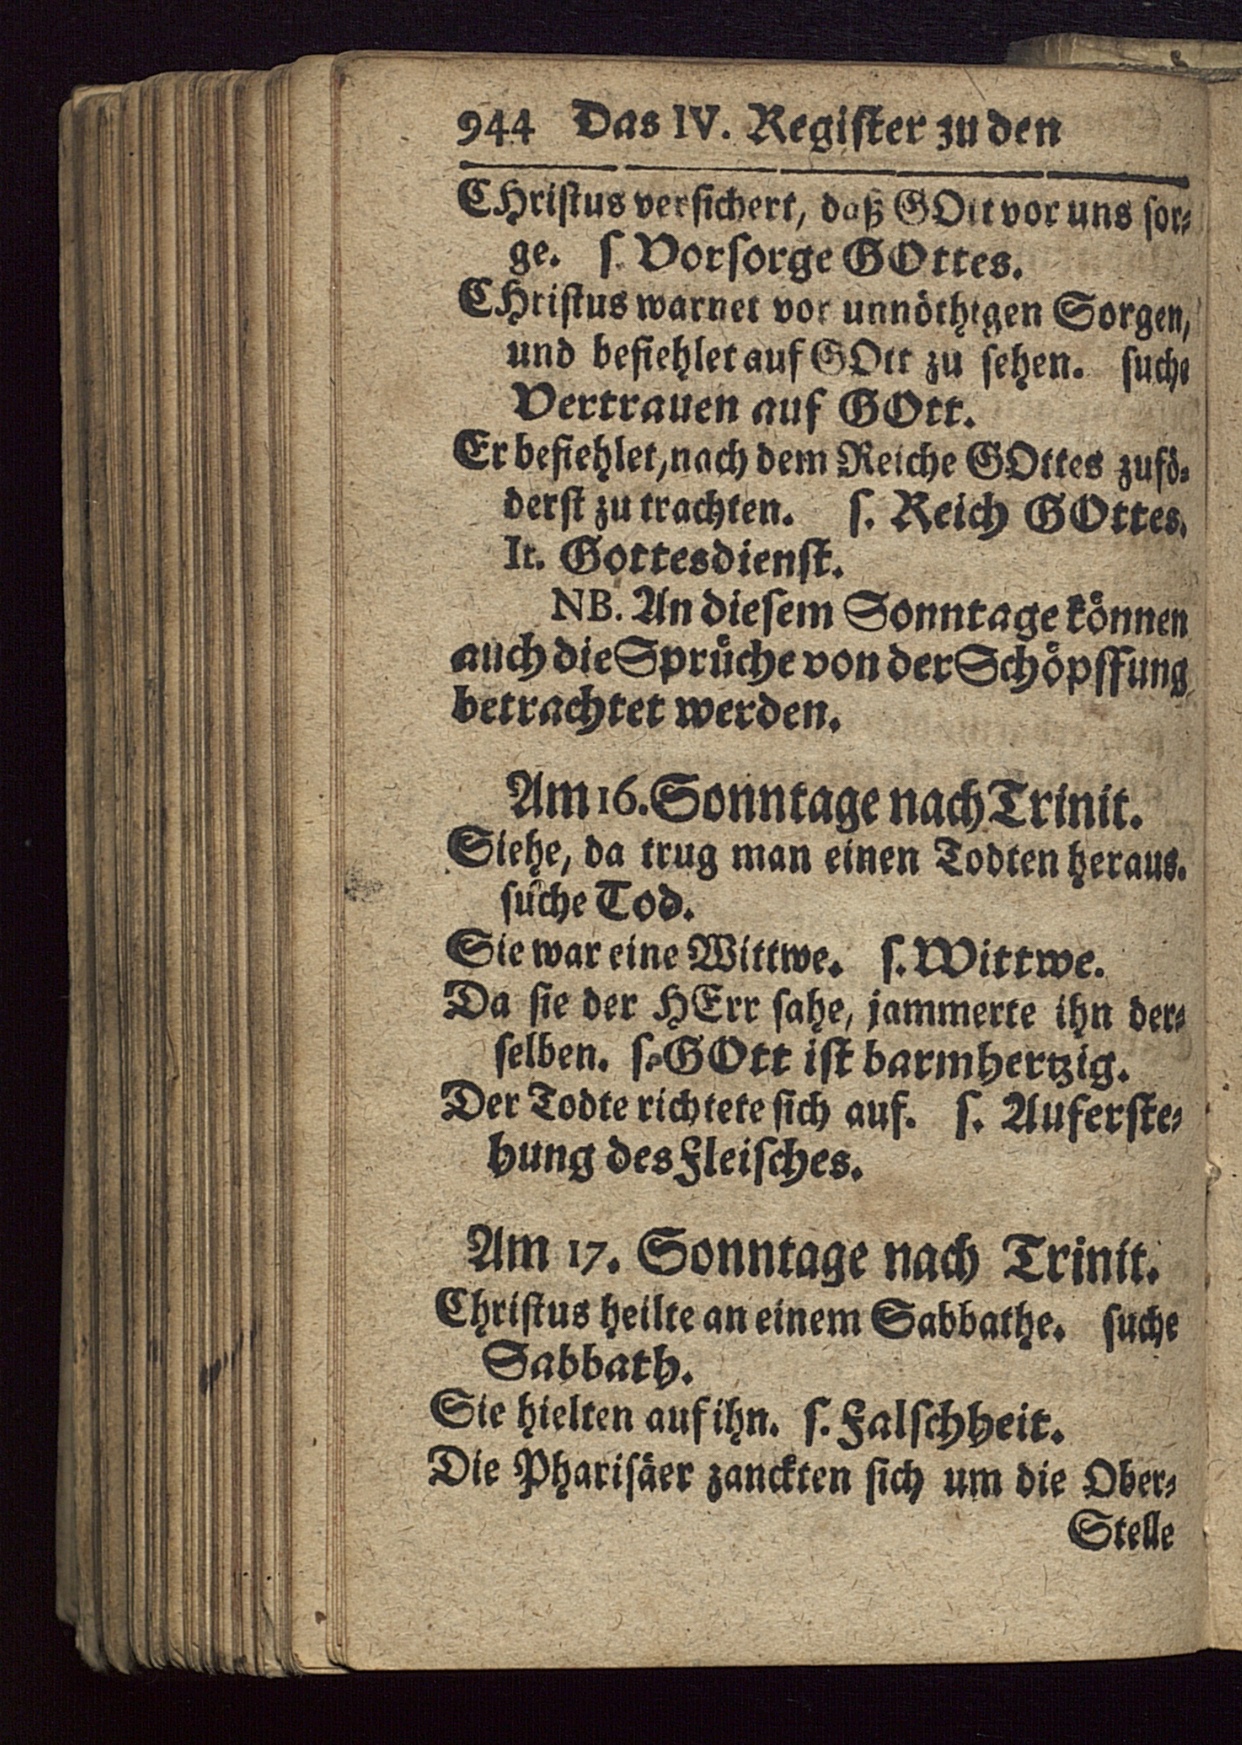 944 Das IV. Register zu den
CHristus versichert, daß GOtt vor uns sor-
ge. s. Vorsorge GOttes.
CHristus warnet vor unnöthigen Sorgen,
und befiehlet auf GOtt zu sehen. suche
Vertrauen auf GOtt.
Er befiehlet, nach dem Reiche GOttes zufö-
derst zu trachten. s. Reich GOttes.
It. Gottesdienst.
NB. An diesem Sonntage können
auch die Sprüche von der Schöpffung
betrachtet werden.
Am 16. Sonntage nach Trinit.
Siehe, da trug man einen Todten heraus.
suche Tod.
Sie war eine Wittwe. s. Wittwe.
Da sie der HErr sahe, jammerte ihn der-
selben. s. GOtt ist barmhertzig.
Der Todte richtete sich auf. s. Auferste-
hung des Fleisches.
Am 17. Sonntage nach Trinit.
Christus heilte an einem Sabbathe. suche
Sabbath.
Sie hielten auf ihn. s. Falschheit.
Die Pharisäer zanckten sich um die Ober-
Stelle